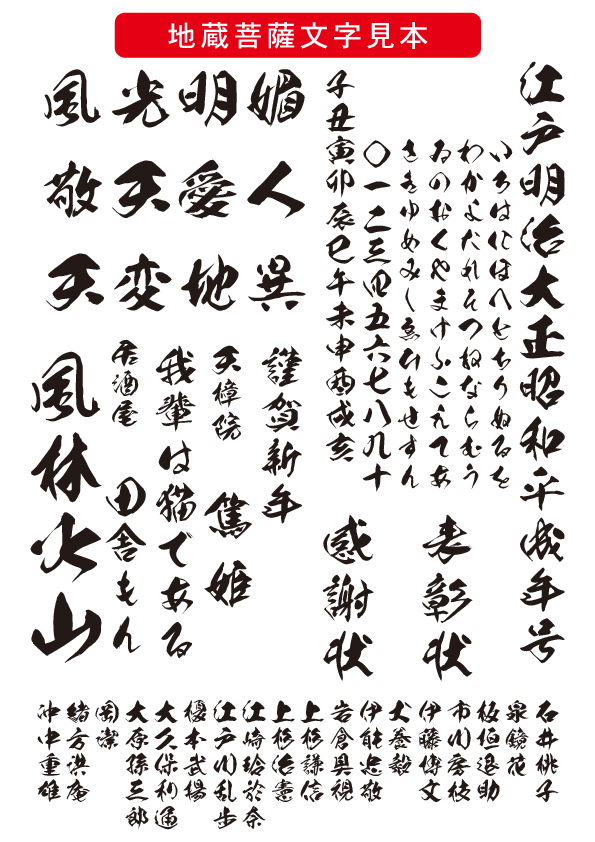 地蔵菩薩文字見本
江戸明治大正昭和平成年号
いろはにほへとちりぬるを
わかよたれそつねならむう
ゐのおくやまけふこえてあ
さきゆめみしゑひもせすん
〇一二三四五六七八九十
子丑寅卯辰巳午未申酉戌亥
表彰状
感謝状
風光明媚
敬天愛人
天変地異
謹賀新年
天樟院 篤姫
我輩は猫である
居酒屋 田舎もん
風林火山
石井桃子
泉鏡花
板垣退助
市川房枝
伊藤博文
犬養毅
伊能忠敬
岩倉具視
上杉謙信
上杉治憲
江崎玲於奈
江戸川乱歩
榎本武揚
大久保利通
大原孫三郎
岡潔
緒方洪庵
沖中重雄